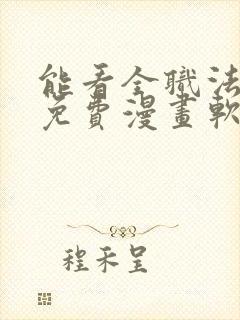 能看全職法
免費漫畫軟
程禾呈